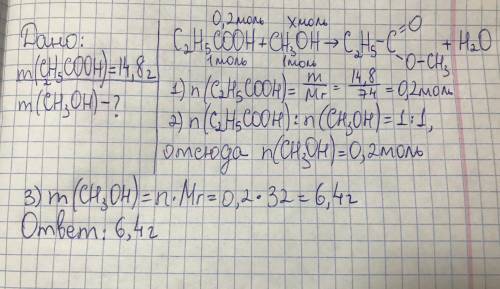 Дано:
m(C₂H₅COOH)=14,8г
m(CH₃OH)-?
0,2моль xмоль
C₂H₅COOH+CH₃OH→C₂H₅-C=O + H₂O
O-CH₃
1моль 1моль
1) n(C₂H₅COOH)= m/Mr = 14,8/74 =0,2моль
2) n(C₂H₅COOH):n(CH₃OH)=1:1,
отсюда n(CH₃OH)=0,2моль
3) m(CH₃OH)=n·Mr=0,2·32=6,4г
Ответ: 6,4г